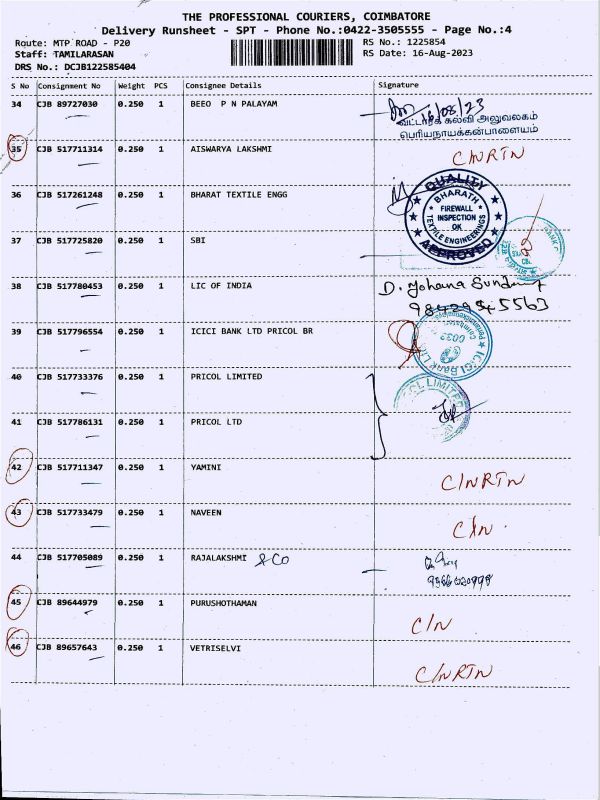 THE PROFESSIONAL COURIERS, COIMBATORE
Delivery Runsheet - SPT - Phone No.:0422-3505555 - Page No.:4
Route: MTP ROAD - P20
RS No.: 1225854
Staff: TAMILARASAN
RS Date: 16-Aug-2023
DRS No.: DCJB122585404
S No Consignment No Weight PCS Consignee Details Signature
34 CJB 89727030 0.250 1 BEEO P N PALAYAM
16/08/23
வட்டாரக் கல்வி அலுவலகம்
பெரியநாயக்கன்பாளையம்
35 CJB 517711314 0.250 1 AISWARYA LAKSHMI C/NRTN
36 CJB 517261248 0.250 1 BHARAT TEXTILE ENGG
QUALITY
BHARATH
FIREWALL
INSPECTION
OK
TEXTILE ENGINEERINGS
APPROVED
37 CJB 517725820 0.250 1 SBI
38 CJB 517780453 0.250 1 LIC OF INDIA D. Yohana
39 CJB 517796554 0.250 1 ICICI BANK LTD PRICOL BR
ICICI Bank
40 CJB 517733376 0.250 1 PRICOL LIMITED
LIMITED
41 CJB 517786131 0.250 1 PRICOL LTD
42 CJB 517711347 0.250 1 YAMINI C/NRTN
43 CJB 517733479 0.250 1 NAVEEN C/N
44 CJB 517705089 0.250 1 RAJALAKSHMI & Co
45 CJB 89644979 0.250 1 PURUSHOTHAMAN C/N
46 CJB 89657643 0.250 1 VETRISELVI C/NRTN